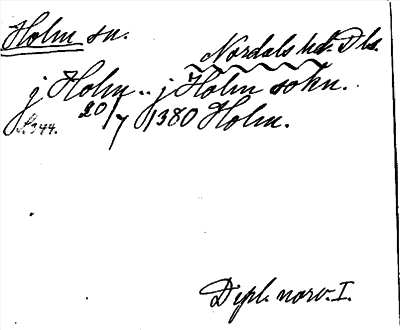 Holm sn.
Nordals hd. Dls.
j Holm .. j Holm sokn.
S.344. 20/7 1380 Holm.
Dipl. norv. I.